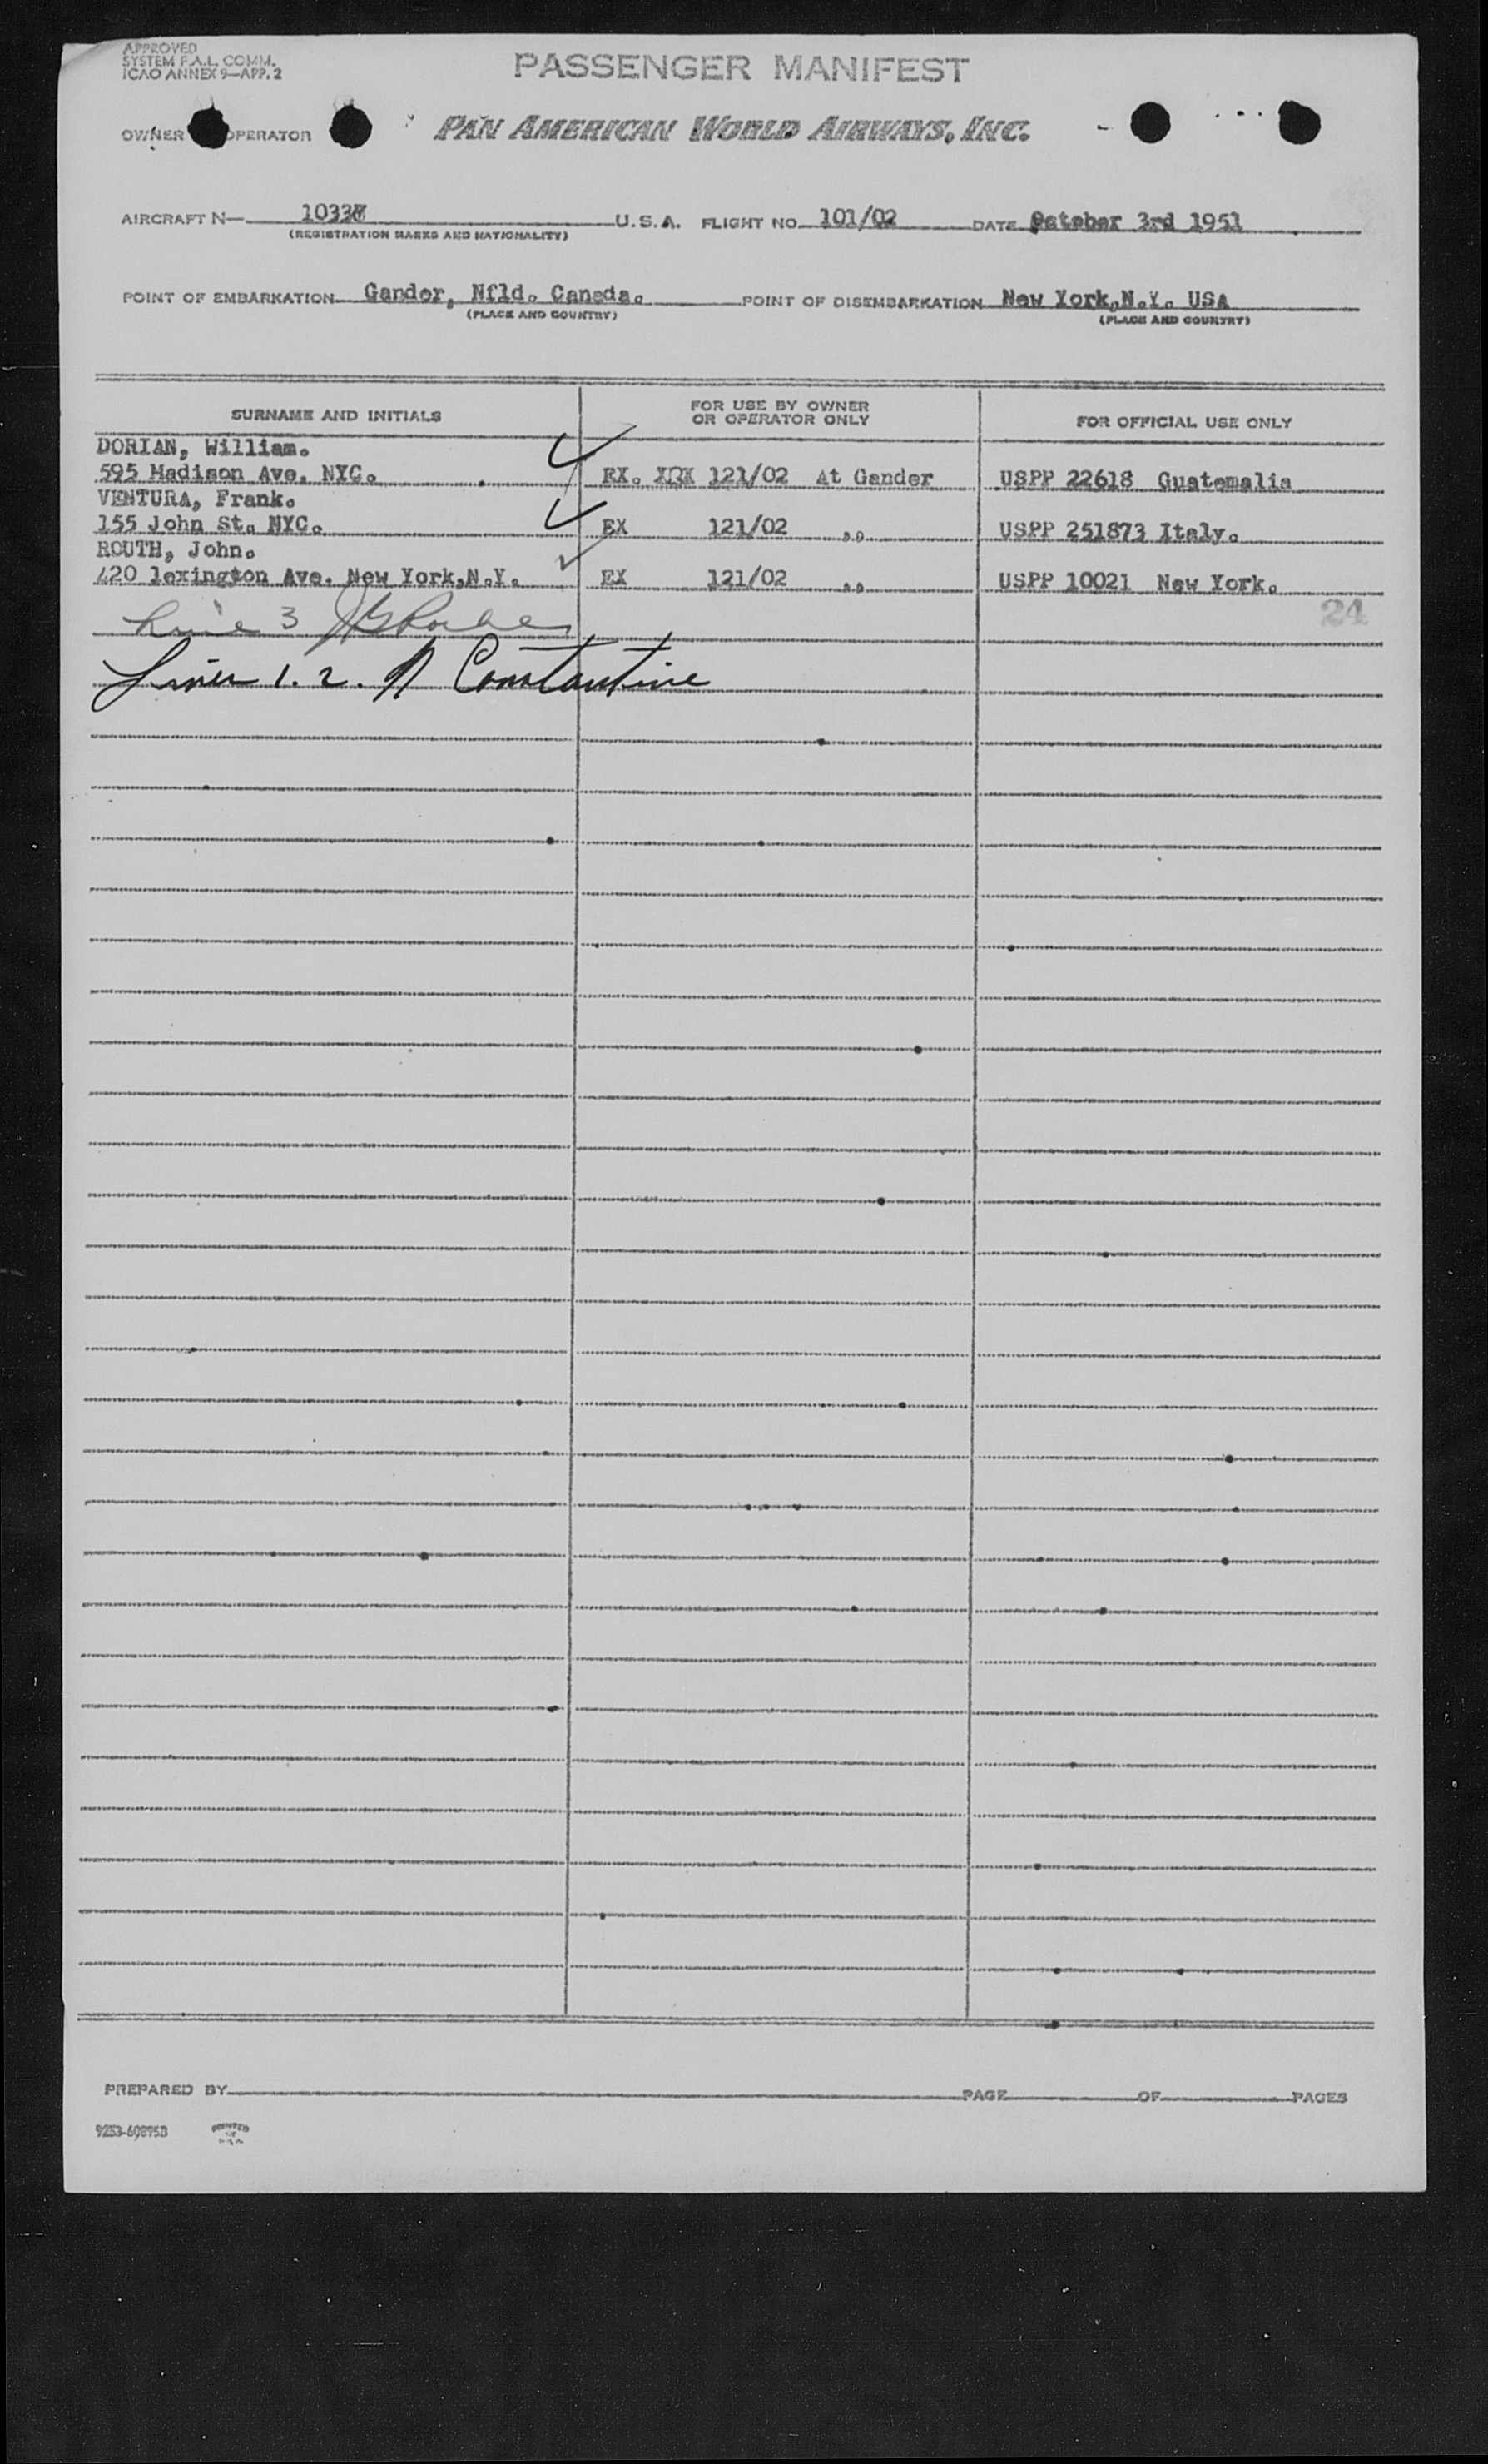 APPROVED
SYSTEM F.A.L. COMM.
ICAO ANNEX 9—APP. 2
PASSENGER MANIFEST
OWNER OPERATOR PAN AMERICAN WORLD AIRWAYS, INC.
AIRCRAFT N— 1033 U.S.A. FLIGHT NO. 101/02 DATE October 3rd 1951
(REGISTRATION MARKS AND NATIONALITY)
POINT OF EMBARKATION Gander, Nfld. Canada. POINT OF DISEMBARKATION New York,N.Y. USA
(PLACE AND COUNTRY) (PLACE AND COUNTRY)
SURNAME AND INITIALS FOR USE BY OWNER OR OPERATOR ONLY FOR OFFICIAL USE ONLY
DORIAN, William.
595 Madison Ave. NYC. EX. 121/02 At Gander USPP 22618 Guatemalia
VENTURA, Frank.
155 John St. NYC. EX 121/02 ,, USPP 251873 Italy.
ROUTH, John.
420 lexington Ave. New York,N.Y. EX 121/02 ,, USPP 10021 New York.
24
Line 3
Lines 1. 2. Constantine
PREPARED BY PAGE OF PAGES
9253-60895B PRINTED